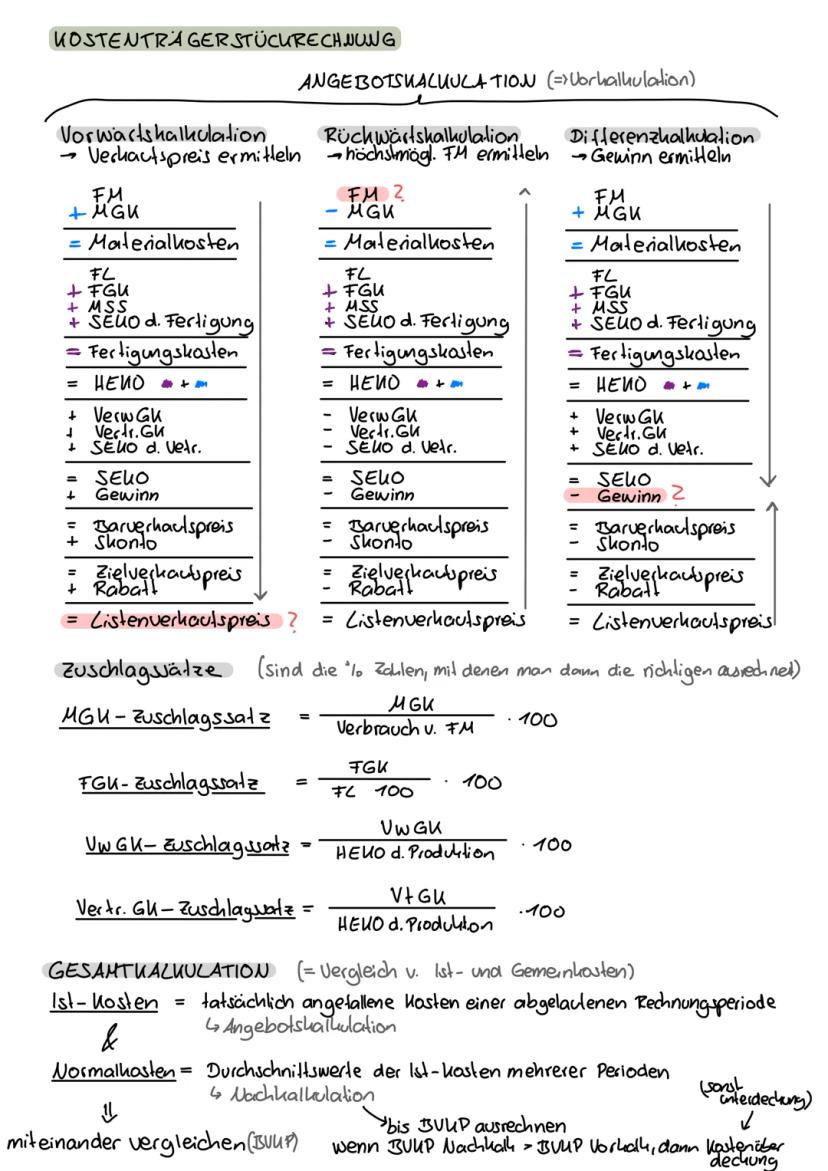 KOSTENTRÄGERSTÜCKRECHNUNG
ANGEBOTSKALKULATION (=> Vorkalkulation)
Vorwärtskalkulation
→ Verkaufspreis ermitteln
FM
+ MGK
= Materialkosten
FL
+ FGK
+ MSS
+ SEKO d. Fertigung
= Fertigungskosten
= HEKO ● + ■
+ VerwGK
+ Vertr.GK
+ SEKO d. Vetr.
= SEKO
+ Gewinn
= Barverkaufspreis
+ Skonto
= Zielverkaufspreis
+ Rabatt
= Listenverkaufspreis ?
Rückwärtskalkulation
→ höchstmögl. FM ermitteln
FM ?
- MGK
= Materialkosten
FL
+ FGK
+ MSS
+ SEKO d. Fertigung
= Fertigungskosten
= HEKO ● + ■
- VerwGK
- Vertr.GK
- SEKO d. Vetr.
= SEKO
- Gewinn
= Barverkaufspreis
- Skonto
= Zielverkaufspreis
- Rabatt
= Listenverkaufspreis
Differenzkalkulation
→ Gewinn ermitteln
FM
+ MGK
= Materialkosten
FL
+ FGK
+ MSS
+ SEKO d. Fertigung
= Fertigungskosten
= HEKO ● + ■
+ VerwGK
+ Vertr.GK
+ SEKO d. Vetr.
= SEKO
- Gewinn ?
= Barverkaufspreis
- Skonto
= Zielverkaufspreis
- Rabatt
= Listenverkaufspreis
Zuschlagssätze (sind die % Zahlen, mit denen man dann die richtigen ausrechnet)
MGK
MGK-Zuschlagssatz = · 100
Verbrauch v. FM
FGK
FGK-Zuschlagssatz = · 100
FL 100
VwGK
VwGK-Zuschlagssatz = · 100
HEKO d. Produktion
VtGK
Vertr. GK-Zuschlagsatz = · 100
HEKO d. Produktion
GESAMTKALKULATION (= Vergleich v. Ist- und Gemeinkosten)
Ist-Kosten = tatsächlich angefallene Kosten einer abgelaufenen Rechnungsperiode
↳ Angebotskalkulation
&
Normalkosten = Durchschnittswerte der Ist-Kosten mehrerer Perioden
↳ Nachkalkulation
(sonst
unterdeckung)
⇓
bis BVKP ausrechnen
miteinander vergleichen (BVKP) wenn BVKP Nachkalk > BVKP Vorkalk, dann Kostenüber
deckung